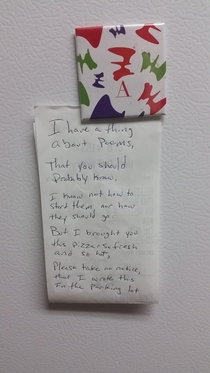 A
I have a thing
about Poems,
That you should
Probably know,
I know not how to
start them, nor how
they should go
But I brought you
this pizza so fresh
and so hot,
Please take no notice,
that I wrote this
in the Parking lot